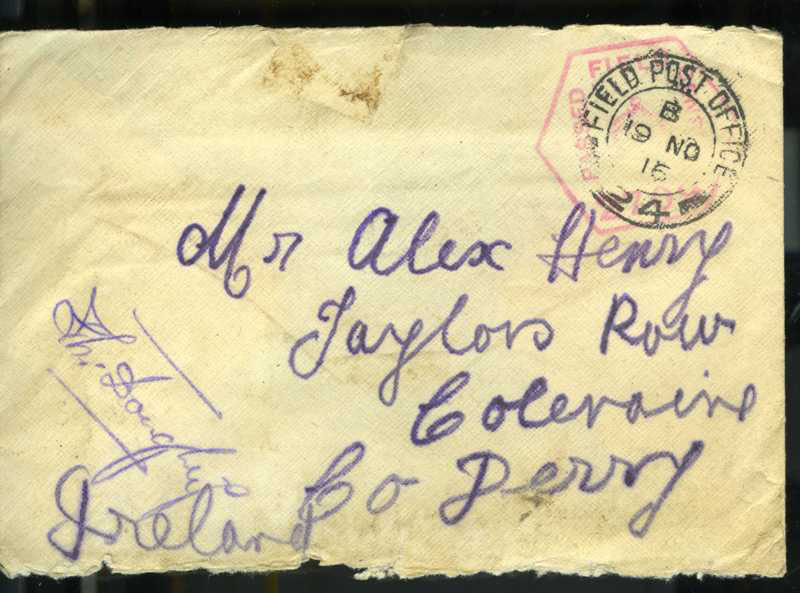 FIELD POST OFFICE
B
19 NO
15
24
PASSED FIEL
Mr Alex Henry
Taylors Row
Coleraine
Co Derry
Ireland